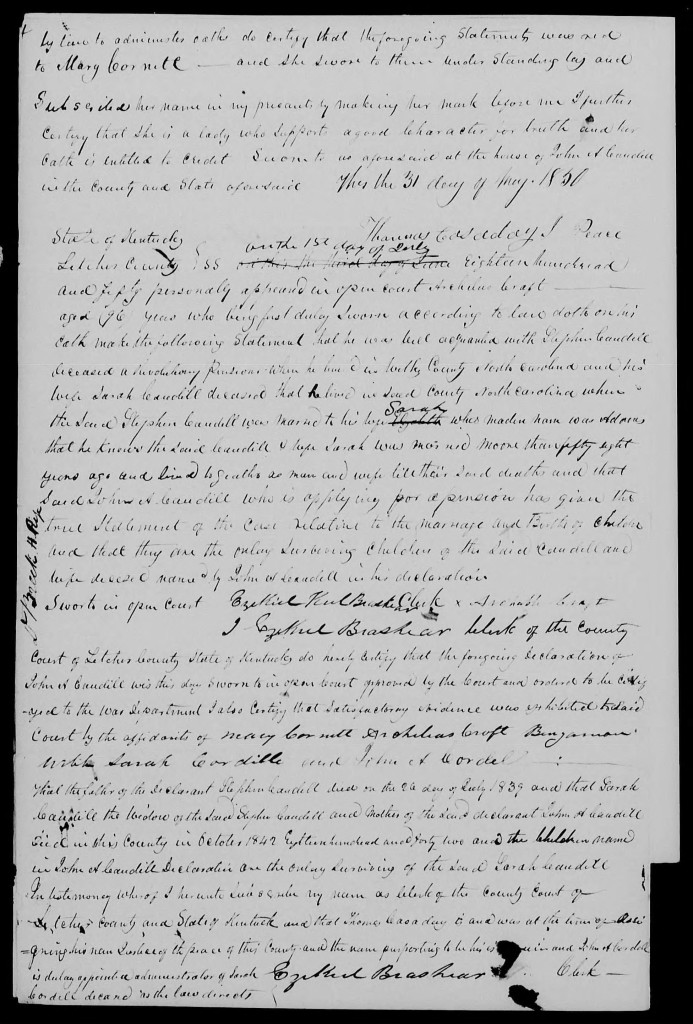 by time to administer oaths do certify that the foregoing Statements was red
to Mary Cornett — and she swore to them under standing lay and
Subscribed her name in my presants by making her mark before me I further
Certify that she is a lady who supports a good Character for truth and her
oath is entitled to credit Sworn to as aforesaid at the house of John A Caudill
in the County and State aforesaid This the 31 day of May 1850
Thomas Casaday J Peace
State of Kentucky
on the 1st day of July
Letcher County } SS Eighteen hundread
and fifty personally appeared in open court Archelus Craft —
aged (96) years who being first duley Sworn according to law doth on his
oath make the following Statement that he was well acquanted with Stephen Caudill
deceased a revolutionary pensioner when he lived in Wilks County North Carolina and his
wife Sarah Caudill deceased that he lived in said County North Carolina when
the said Stephen Caudill was marred to his wife Sarah whos maden nam was Adams
that he knows the said Caudill & wife Sarah was married moore than fifty eight
years ago and lived to geather as man and wife till their said deaths and that
Said John A Caudill who is applying for a pension has given the
true Statement of the Case relative to the marriage and Births of children
and that they are the onley Surviving Children of the said Caudill and
wife decesd named by John A Caudill in his declaration
Sworn in open Court Ezekiel Brashear Clerk x Archelus Craft
I Ezekiel Brashear Clerk of the County
Court of Letcher County State of Kentucky do hereby Certify that the foregoing Declaration of
John A Caudill was this day Sworn to in open Court approved by the Court and orderd to be
to the War Department I also Certify that Satisfactory evidence was exhibited to said
Court by the affidavits of Mary Cornett Archelias Craft Bengaman
Webb Sarah Cordille and John A Cordel
that the father of the Declarant Stephen Caudill died on the 26 day of July 1839 and that Sarah
Caudill the Widow of the said Stephen Caudill and Mother of the said declarant John A Caudill
Died in this County in October 1842 Eighteen hundread and forty two and the Children named
in John A Caudill Declaration are the onley surviving of the said Sarah Caudill
In testimoney whereof I here unto Subscribe my name as Clerk of the County Court of
Letcher County and State of Kentuck and that Thomas Casaday is and was at the time of
signing his nam Justice of the peace of this County and the name purporting to be his is and John A Cordill
is duley appointed administrator of Sarah Ezekiel Brashear Clerk —
Cordill decead as the law directs